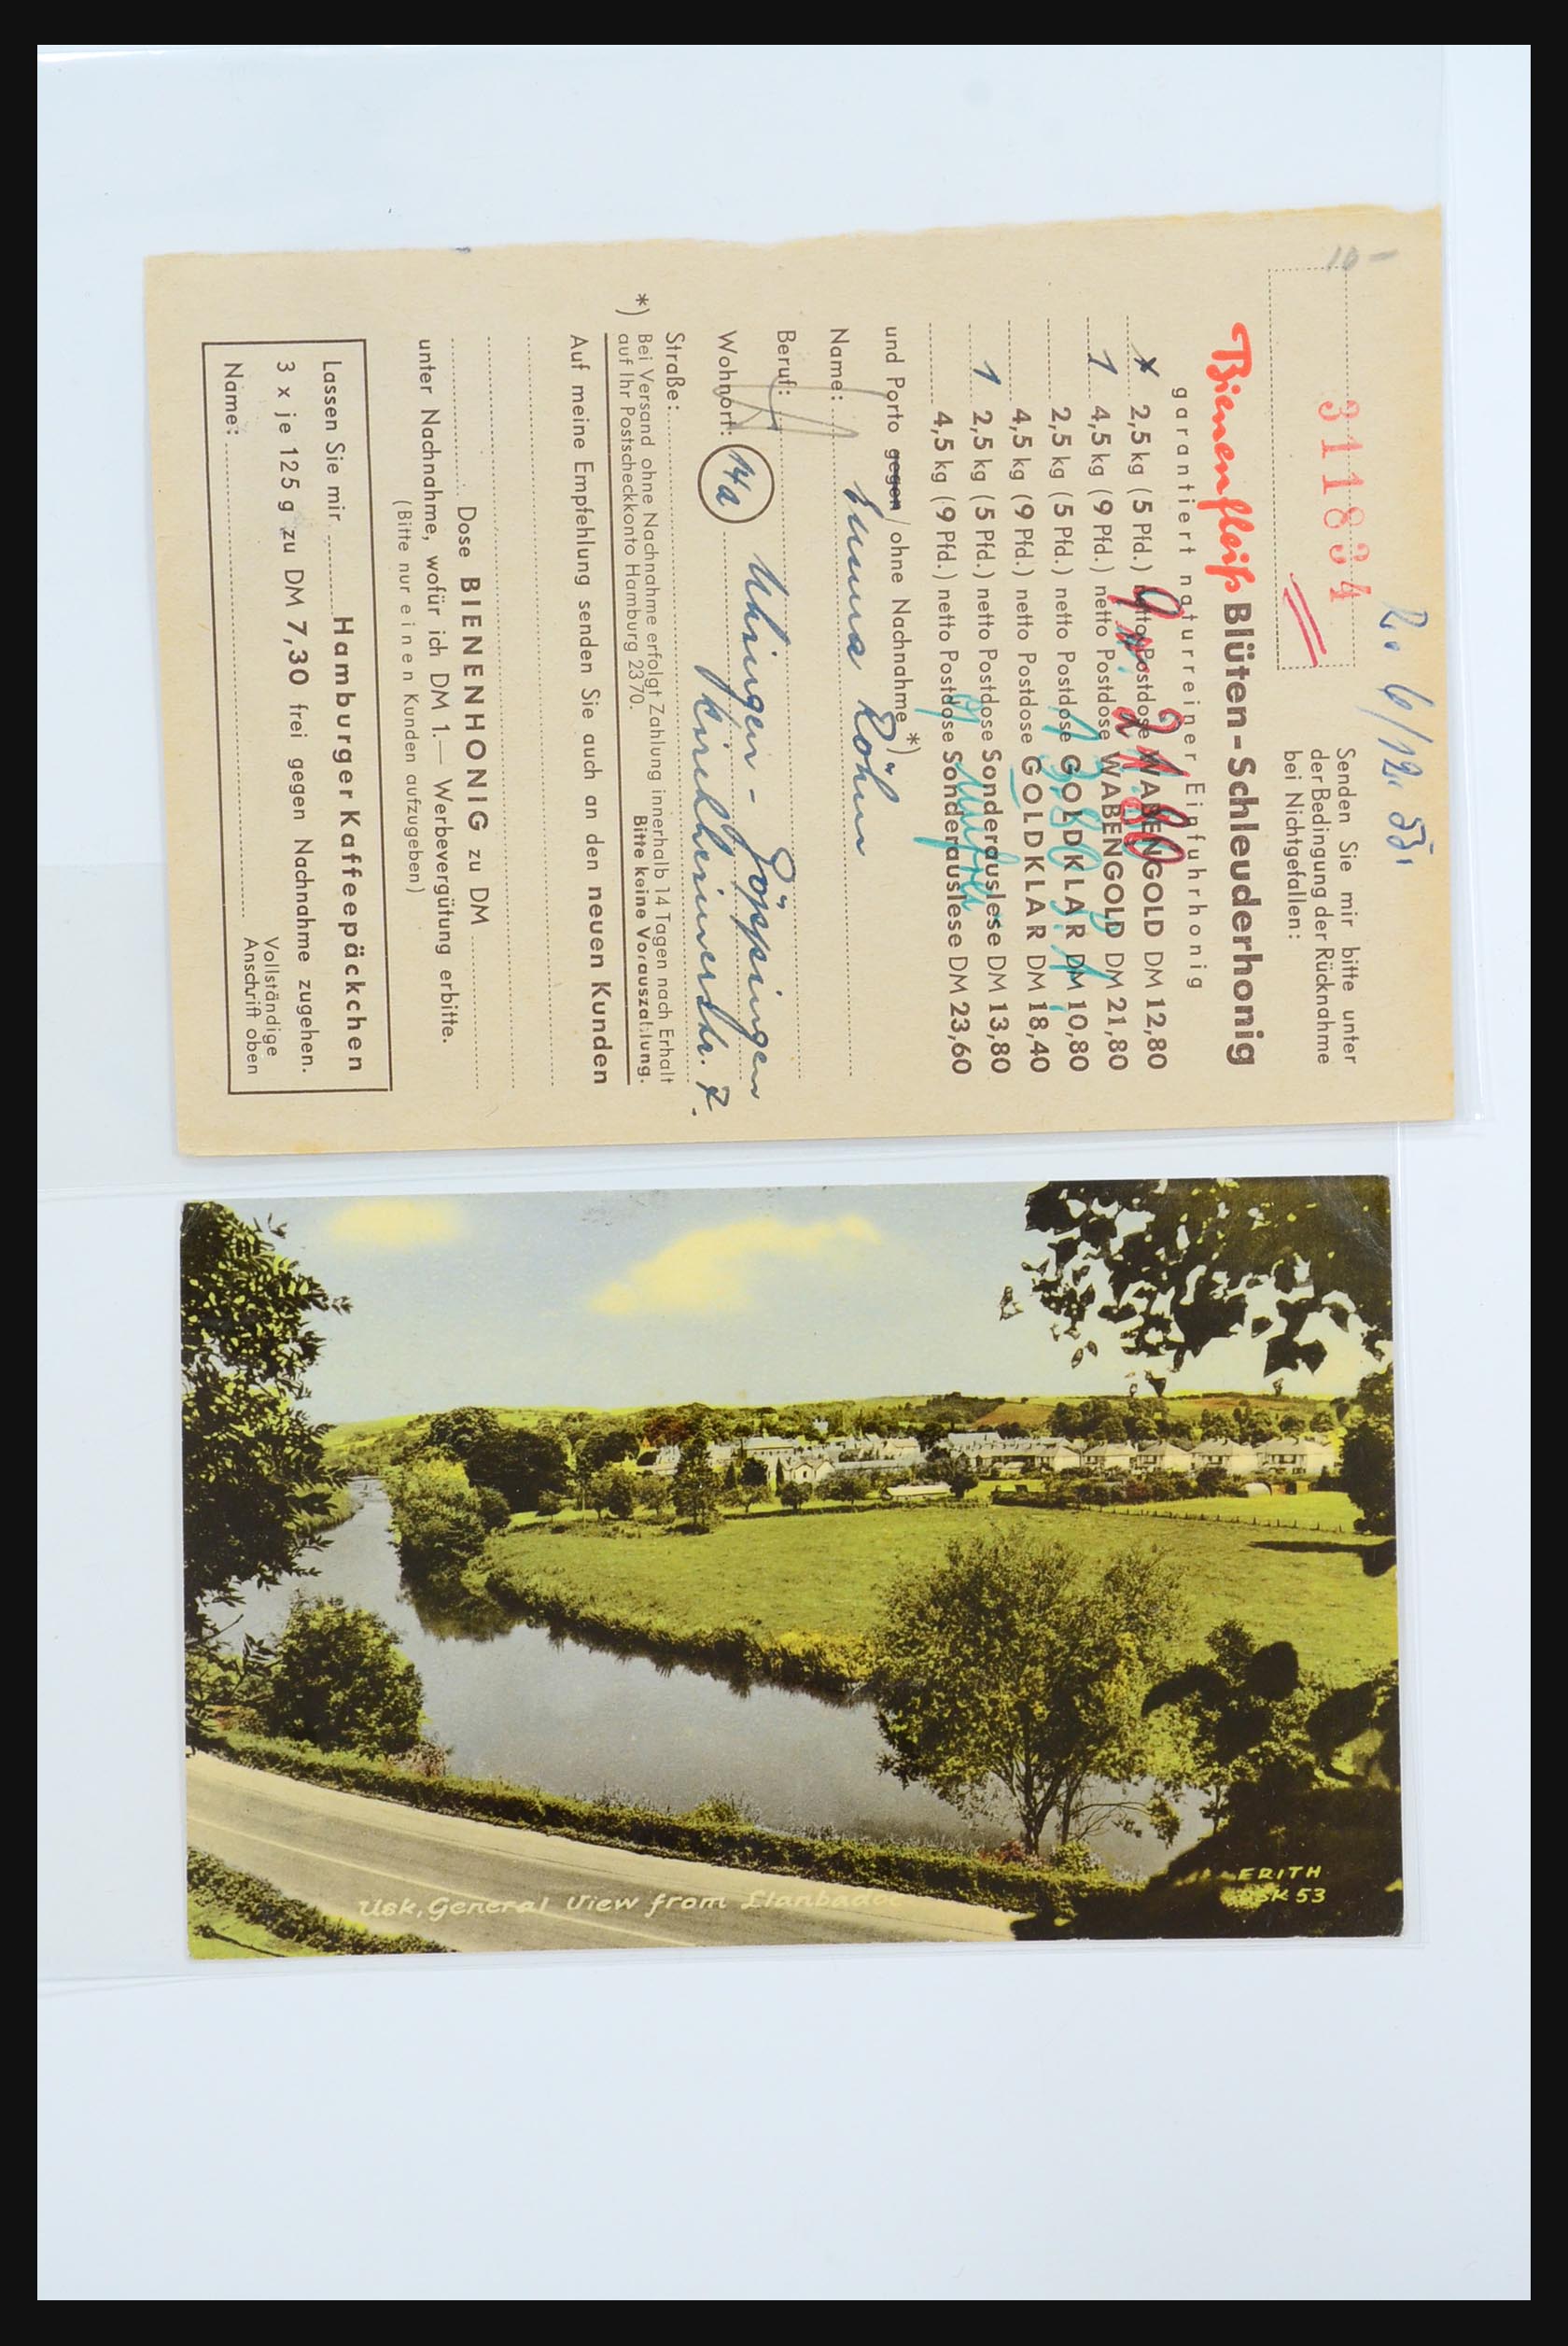 10-
2. 6/12. 55.
311834
Senden Sie mir bitte unter
der Bedingung der Rücknahme
bei Nichtgefallen:
Bienenfleiß Blüten-Schleuderhonig
garantiert naturreiner Einfuhrhonig
x 2,5 kg (5 Pfd.) netto Postdose WABENGOLD DM 12,80
1 4,5 kg (9 Pfd.) netto Postdose WABENGOLD DM 21,80
2,5 kg (5 Pfd.) netto Postdose GOLDKLAR DM 10,80
4,5 kg (9 Pfd.) netto Postdose GOLDKLAR DM 18,40
1 2,5 kg (5 Pfd.) netto Postdose Sonderauslese DM 13,80
4,5 kg (9 Pfd.) netto Postdose Sonderauslese DM 23,60
und Porto gegen / ohne Nachnahme *)
Name: Emma Röhm
Beruf:
Wohnort: 14a Uhingen - Göppingen
Straße: Kirchheimerstr. 7.
*) Bei Versand ohne Nachnahme erfolgt Zahlung innerhalb 14 Tagen nach Erhalt
auf Ihr Postscheckkonto Hamburg 2370. Bitte keine Vorauszahlung.
Auf meine Empfehlung senden Sie auch an den neuen Kunden
Dose BIENENHONIG zu DM
unter Nachnahme, wofür ich DM 1.— Werbevergütung erbitte.
(Bitte nur einen Kunden aufzugeben)
Lassen Sie mir Hamburger Kaffeepäckchen
3 x je 125 g zu DM 7,30 frei gegen Nachnahme zugehen.
Name: Vollständige
Anschrift oben
Usk, General View from Llanbadoc
FRITH
USK 53